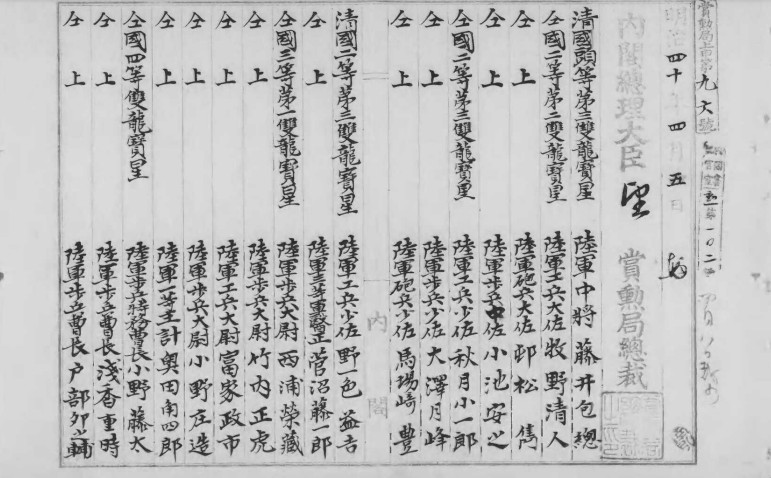 賞勲局上第九六號
明治四十年四月五日
内閣總理大臣
賞勳局總裁
清國頭等第三雙龍寶星 陸軍中將 藤井包總
仝國二等第二雙龍寶星 陸軍工兵大佐 牧野清人
仝上 陸軍砲兵大佐 邨松雋
仝上 陸軍步兵中佐 小池安之
仝國二等第三雙龍寶星 陸軍工兵少佐 秋月小一郎
仝上 陸軍步兵少佐 大澤月峰
仝上 陸軍砲兵少佐 馬場崎豊
内閣
清國二等第三雙龍寶星 陸軍工兵少佐 野一色益吉
仝上 陸軍三等軍醫正 菅沼藤一郎
仝國三等第一雙龍寶星 陸軍步兵大尉 西浦榮藏
仝上 陸軍步兵大尉 竹内正虎
仝上 陸軍工兵大尉 富家政市
仝上 陸軍步兵大尉 小野庄造
仝上 陸軍一等主計 奥田角四郎
仝國四等雙龍寶星 陸軍步兵特務曹長 小野藤太
仝上 陸軍步兵曹長 淺香重時
仝上 陸軍步兵曹長 戸部卯之輔